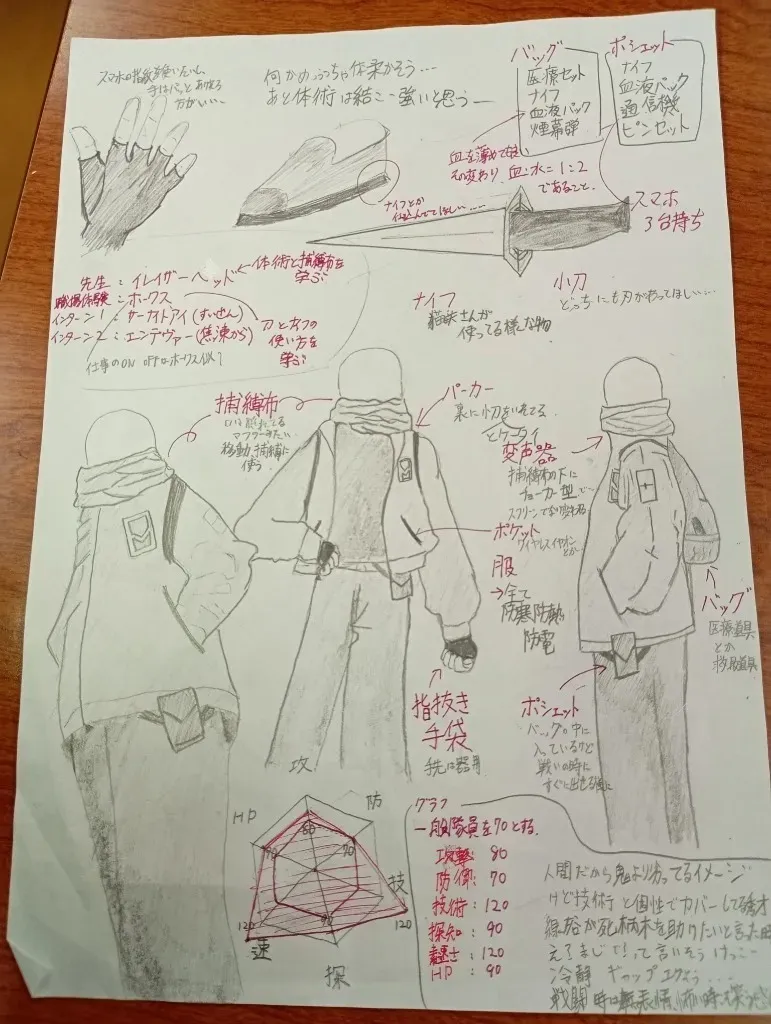 スマホの指紋を使いたいし、
手はパッとあける
方がいい、、、
何かめっちゃ体柔かそう…
あと体術は結こー強いと思うー
バッグ
医療セット
ナイフ
血液パック
煙幕弾
ポシェット
ナイフ
血液パック
通信機
ピンセット
血を薄めて良い
その変わり 血:水=1:2
であること、
ナイフとか
仕込んでてほしい……
スマホ
3台持ち
先生:イレイザーヘッド
体術と捕縛布を
学ぶ
職場体験:ホークス
インターン1:サーナイトアイ(すいせん)
インターン2:エンデヴァー(焦凍から)
刀とナイフの
使い方を
学ぶ
仕事のON OFFはホークス似
ナイフ
猫鉄さんが
使ってる様な物
小刀
どっちにも刃があってほしい……
捕縛布
口は隠れてる
マフラーみたい
移動、捕縛に
使う
パーカー
裏に小刀をいれてる
とケータイ
変声器
捕縛布の下に
チョーカー型で…
スクリーンで声が変わる
ポケット
ワイヤレスイヤホン
とか
服
→全て
防寒防熱
防電
バッグ
医療道具
とか
救助道具
指抜き
手袋
手先は器用
ポシェット
バッグの中に
入っているけど
戦いの時に
すぐに出せる様に
攻
HP
防
80
70
90
技
120
120
速
探
グラフ
一般隊員を70とする。
攻撃:80
防御:70
技術:120
探知:90
速さ:120
HP:90
人間だから鬼より劣ってるイメージ
けど技術と個性でカバーしてる秀才
緑谷が死柄木を助けたいと言った時
えっまじで!って言いそう けっこー
冷静 ギャップエグそう…
戦闘時は無表情、怖い時